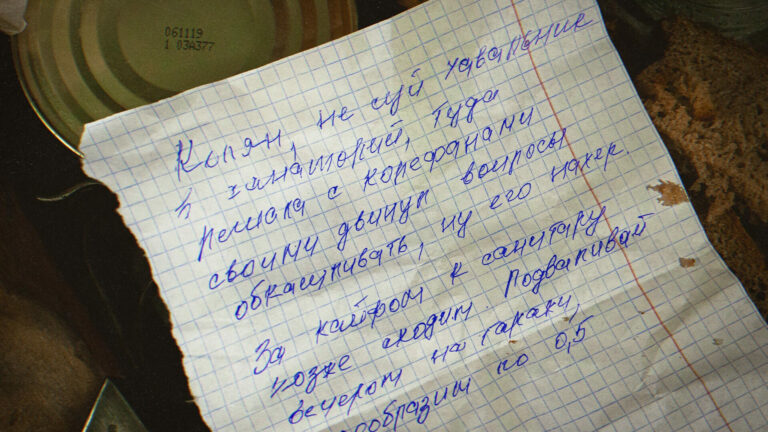 061119
1 03A377
Колян, не суй хавальник
в санаторий, туда
Пешала с корефанами
своими двинул вопросы
обкашливать, ну его нахер.
За кайфом к санитару
позже сходим. Подваливай
вечером на гаражи,
сообразим по 0,5